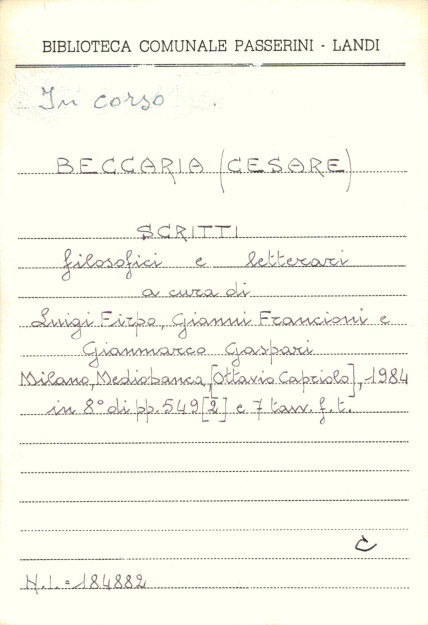 BIBLIOTECA COMUNALE PASSERINI - LANDI
In corso
BECCARIA (CESARE)
SCRITTI
filosofici e letterari
a cura di
Luigi Firpo, Gianni Francioni e
Gianmarco Gaspari
Milano, Mediobanca, [Ottavio Capriolo], 1984
in 8° di pp. 549 [2] e 7 tavv. f. t.
C
N.I. = 184882